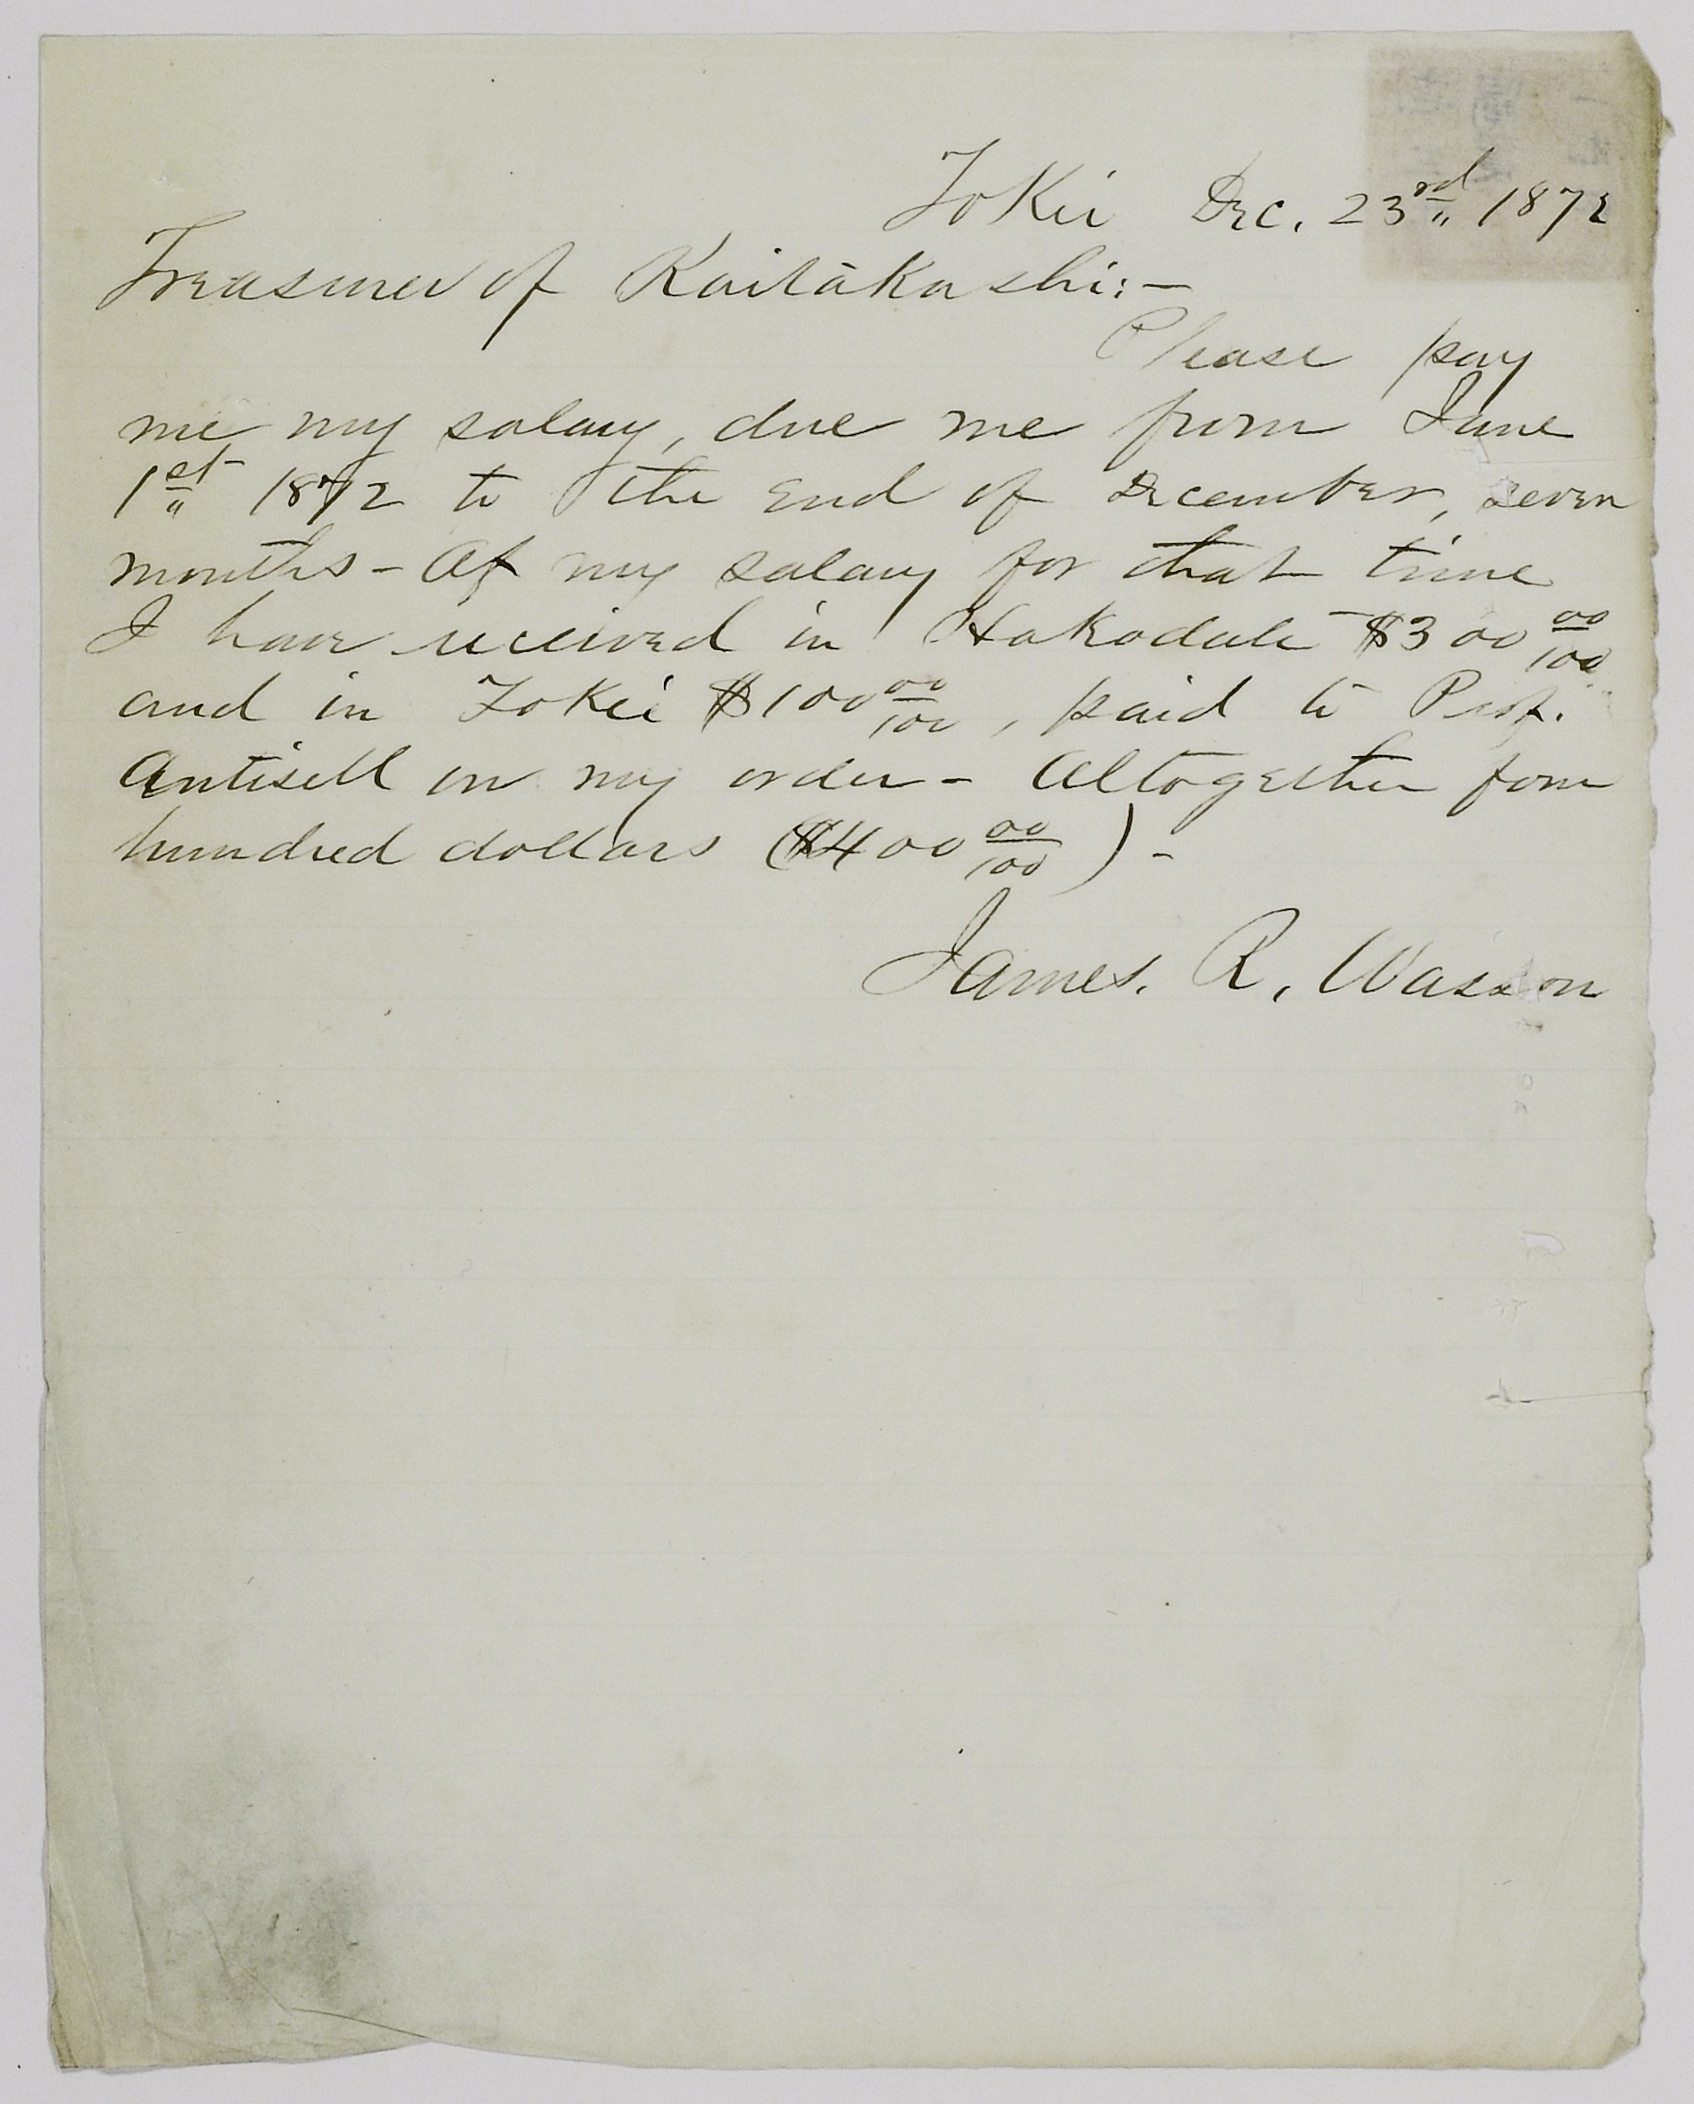 ToKii Dec. 23rd 1872
Treasurer of KaitaKashi:-
Please pay
me my salary, due me from June
1st 1872 to the end of December, seven
months - Of my salary for that time
I have received in Hakodate - $300 00/100
and in ToKii $100 00/100, paid to Prof.
Antisell on my order - Altogether four
hundred dollars ($400 00/100) -
James. R. Wasson